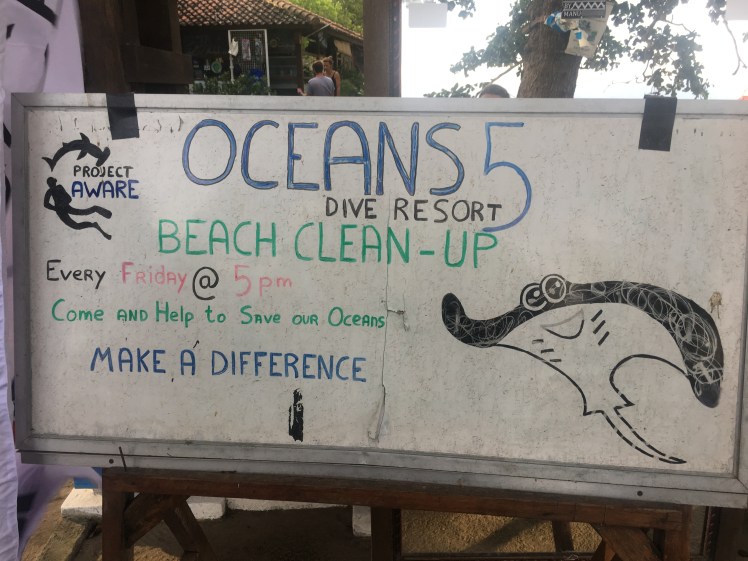 PROJECT
AWARE
OCEANS 5
DIVE RESORT
BEACH CLEAN-UP
EVERY FRIDAY @ 5pm
COME AND HELP TO SAVE OUR OCEANS
MAKE A DIFFERENCE